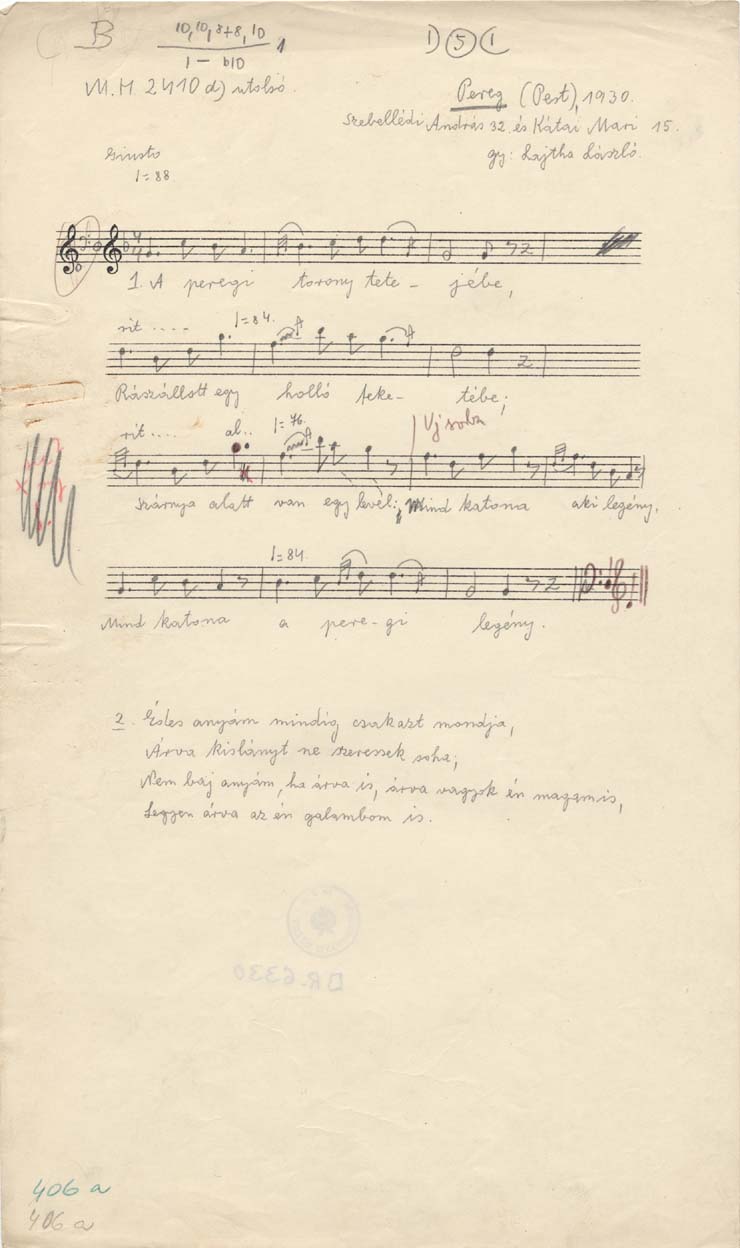 B
10, 10, 8+8, 10
1 – b10
1) 5 (1
M.H. 2410 d) utolsó.
Pereg (Pest), 1930.
Szebellédi András 32. és Kátai Mari 15.
gy: Lajtha László.
Giusto
♩=88
1. A peregi torony tete- jébe,
rit .... ♩=84.
Rászállott egy holló feke- tébe;
rit .... al.. ♩=76. Uj sorba
Szárnya alatt van egy levél: Mind katona aki legény,
♩=84
Mind katona a pere-gi legény.
2. Édes anyám mindig csak azt mondja,
Árva kislányt ne szeressek soha;
Nem baj anyám, ha árva is, árva vagyok én magam is,
Legyen árva az én galambom is.
BR. 6330
406 a
406 a